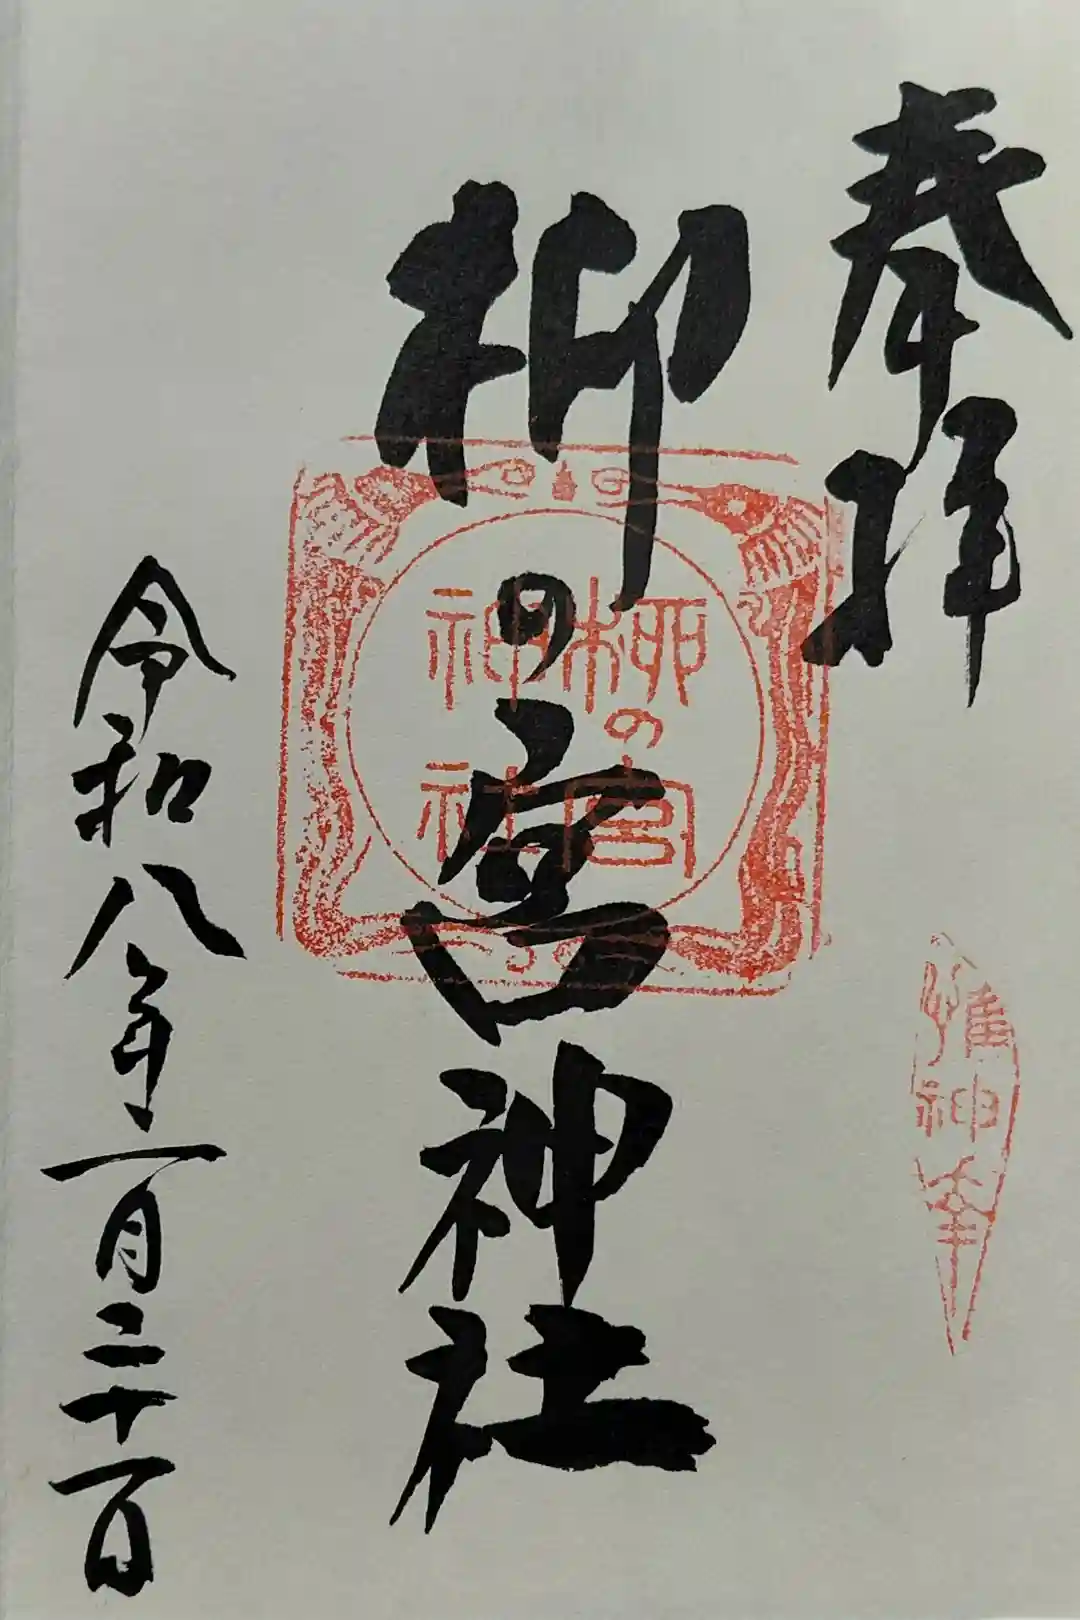 奉拝
柳の宮神社
令和八年一月二十一日
柳の宮
神社
惟神